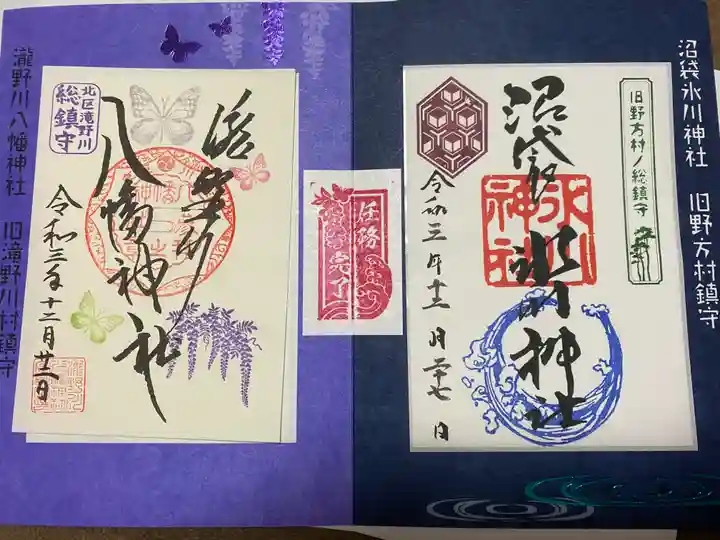 沼袋氷川神社 旧野方村鎮守
旧野方村ノ総鎮守
沼袋氷川神社
氷川
神社
令和三年十二月二十七日
任務
完了
瀧野川
八幡神社
北区滝野川
総鎮守
令和三年十二月廿一日
瀧野川八幡神社 旧滝野川村鎮守